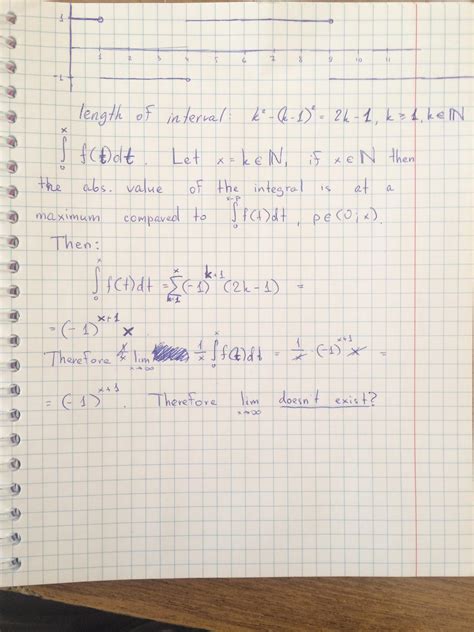 1
1 2 3 4 5 6 7 8 9 10 11
-1
length of interval: k² - (k-1)² = 2k - 1, k ≥ 1, k ∈ ℕ
∫₀ˣ f(t)dt. Let x = k ∈ ℕ, if x ∈ ℕ then
the abs. value of the integral is at a
maximum compared to ∫₀ˣ⁻ᵖ f(t)dt, p ∈ (0; x).
Then:
∫₀ˣ f(t)dt = Σₖ₌₁ˣ (-1)ᵏ⁺¹ (2k - 1) =
= (-1)ˣ⁺¹ x
Therefore lim x→∞ 1/x ∫₀ˣ f(t)dt = 1/x · (-1)ˣ⁺¹ x =
= (-1)ˣ⁺¹. Therefore lim x→∞ doesn't exist?